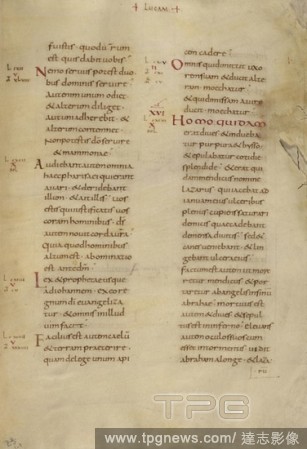 + LUCAM +
fuistis quod uestrum
est quis dabit uobis
Nemo seruus potest duo
bus dominis seruire
aut enim unum odiet
& alterum diliget
aut uni adherebit &
alterum contemnet
non potestis deo seruire
& mammonae
Audiebant autem omnia
haec pharisaei qui erant
auari & deridebant
illum & ait illis uos
estis qui iustificatis uos
coram hominibus ds
autem nouit corda ura
quia quod hominibus
altum est abominatio
est ante dm
Lex & prophetae usque
ad iohannem ex eo re
gnum di euangeliza
tur & omnis in illud
uim facit
Facilius est autem caelum
& terram praeterire
quam de lege unum api
cem cadere
Omnis qui dimittit uxo
rem suam & ducit alte
ram moechatur
& qui dimissam a uiro
ducit moechatur
XVI
Homo quidam
erat diues & indueba
tur purpura & bysso
& epulabatur cotidie
splendide & erat qui
dam mendicus nomine
lazarus qui iacebat ad
ianuam eius ulceribus
plenus cupiens saturari
de micis quae cadebant
de mensa diuitis sed &
canes ueniebant & lin
gebant ulcera eius
factum est autem ut more
retur mendicus & por
taretur ab angelis in sinum
abrahae mortuus est
autem & diues & sepul
tus est in inferno eleuans
autem oculos suos cum
esset in tormentis uidit
abraham a longe & laza
rum
TPG
www.tpgnews.com/達志影像